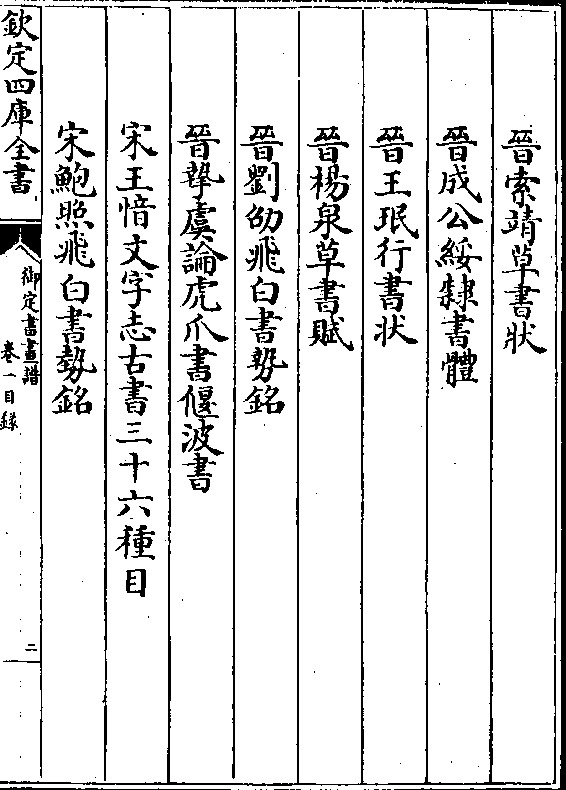 晉索靖草書狀
晉成公綏隸書體
晉王珉行書狀
晉楊泉草書賦
晉劉劭飛白書勢銘
晉摯虞論虎爪書偃波書
宋王愔文字志古書三十六種目
宋鮑照飛白書勢銘
欽定四庫全書
御定書畫譜
卷一目錄
二